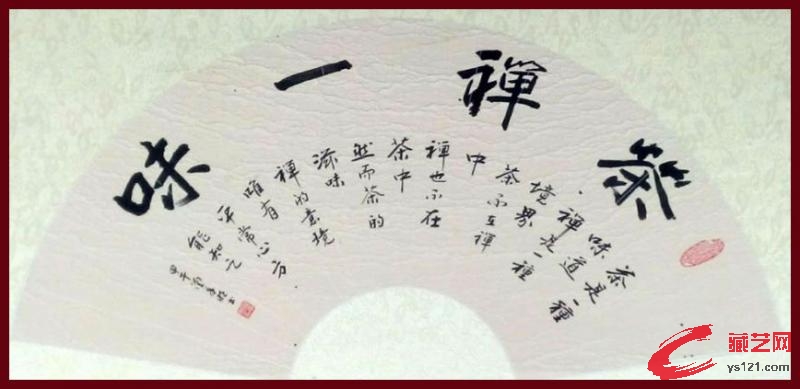 茶禪一味
茶是一種
味道
禪是一種
境界
茶不在禪
中
禪也不在
茶中
然而茶的
滋味
禪的意境
唯有
平常心方
能知之
甲午
藏艺网
ys121.com